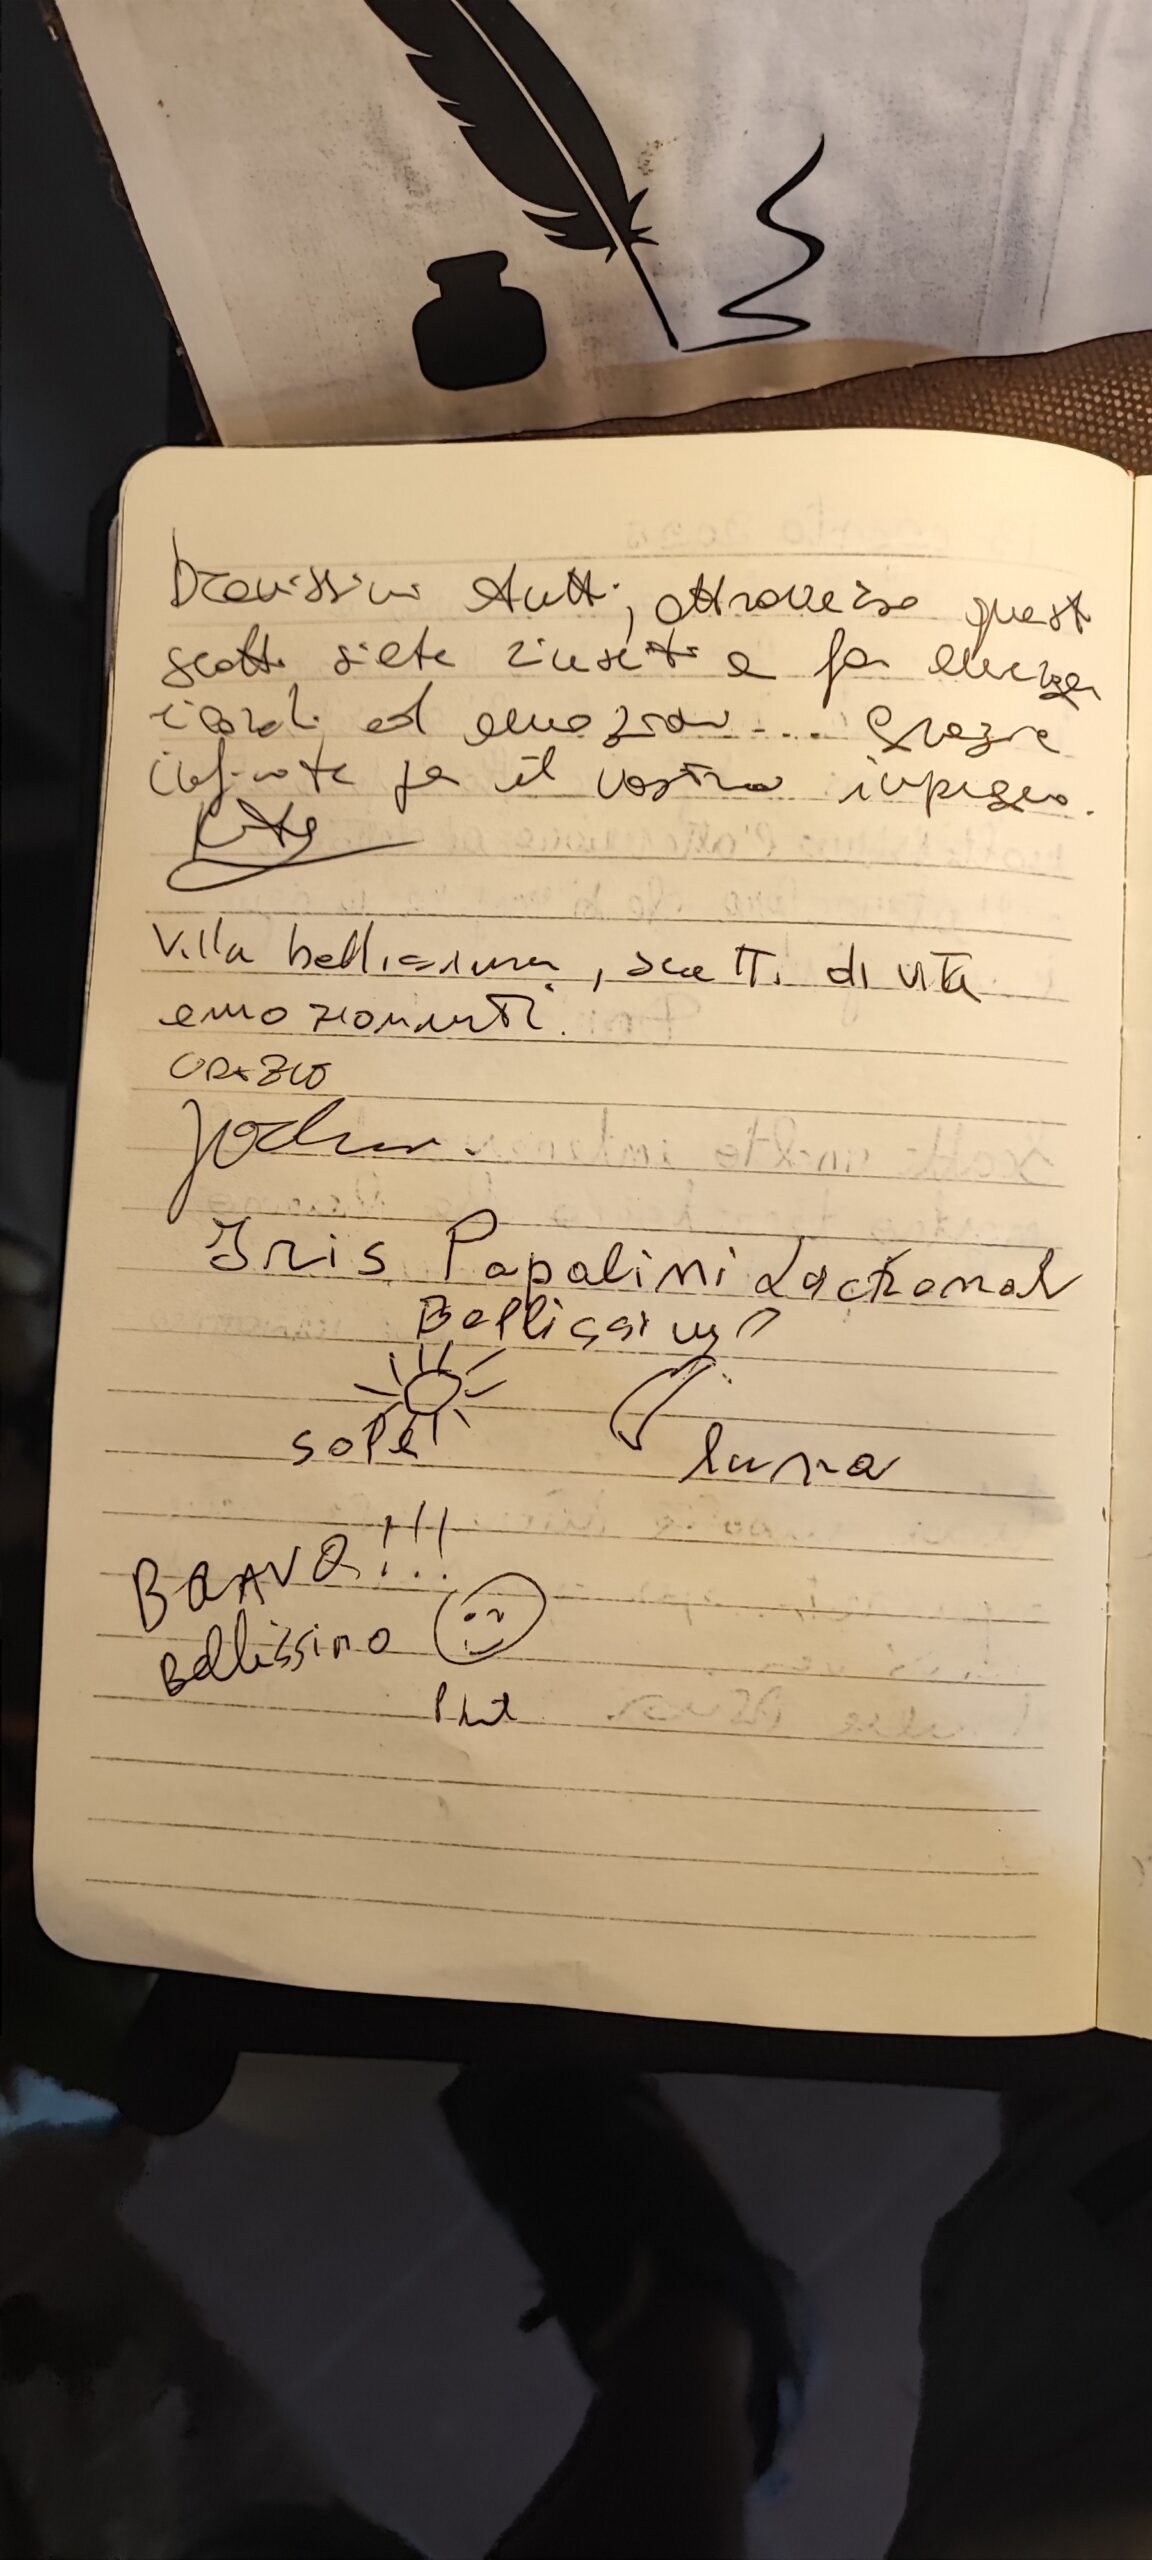 Bravissimi tutti, attraverso questi
scatti siete riusciti a far emergere
ricordi ed emozioni... Grazie
infinite per il vostro impegno.
Villa bellissima, scatti di vita
emozionanti.
ORAZIO
Iris Papalini
Bellissimo
sole
luna
BRAVO!!!
Bellissimo